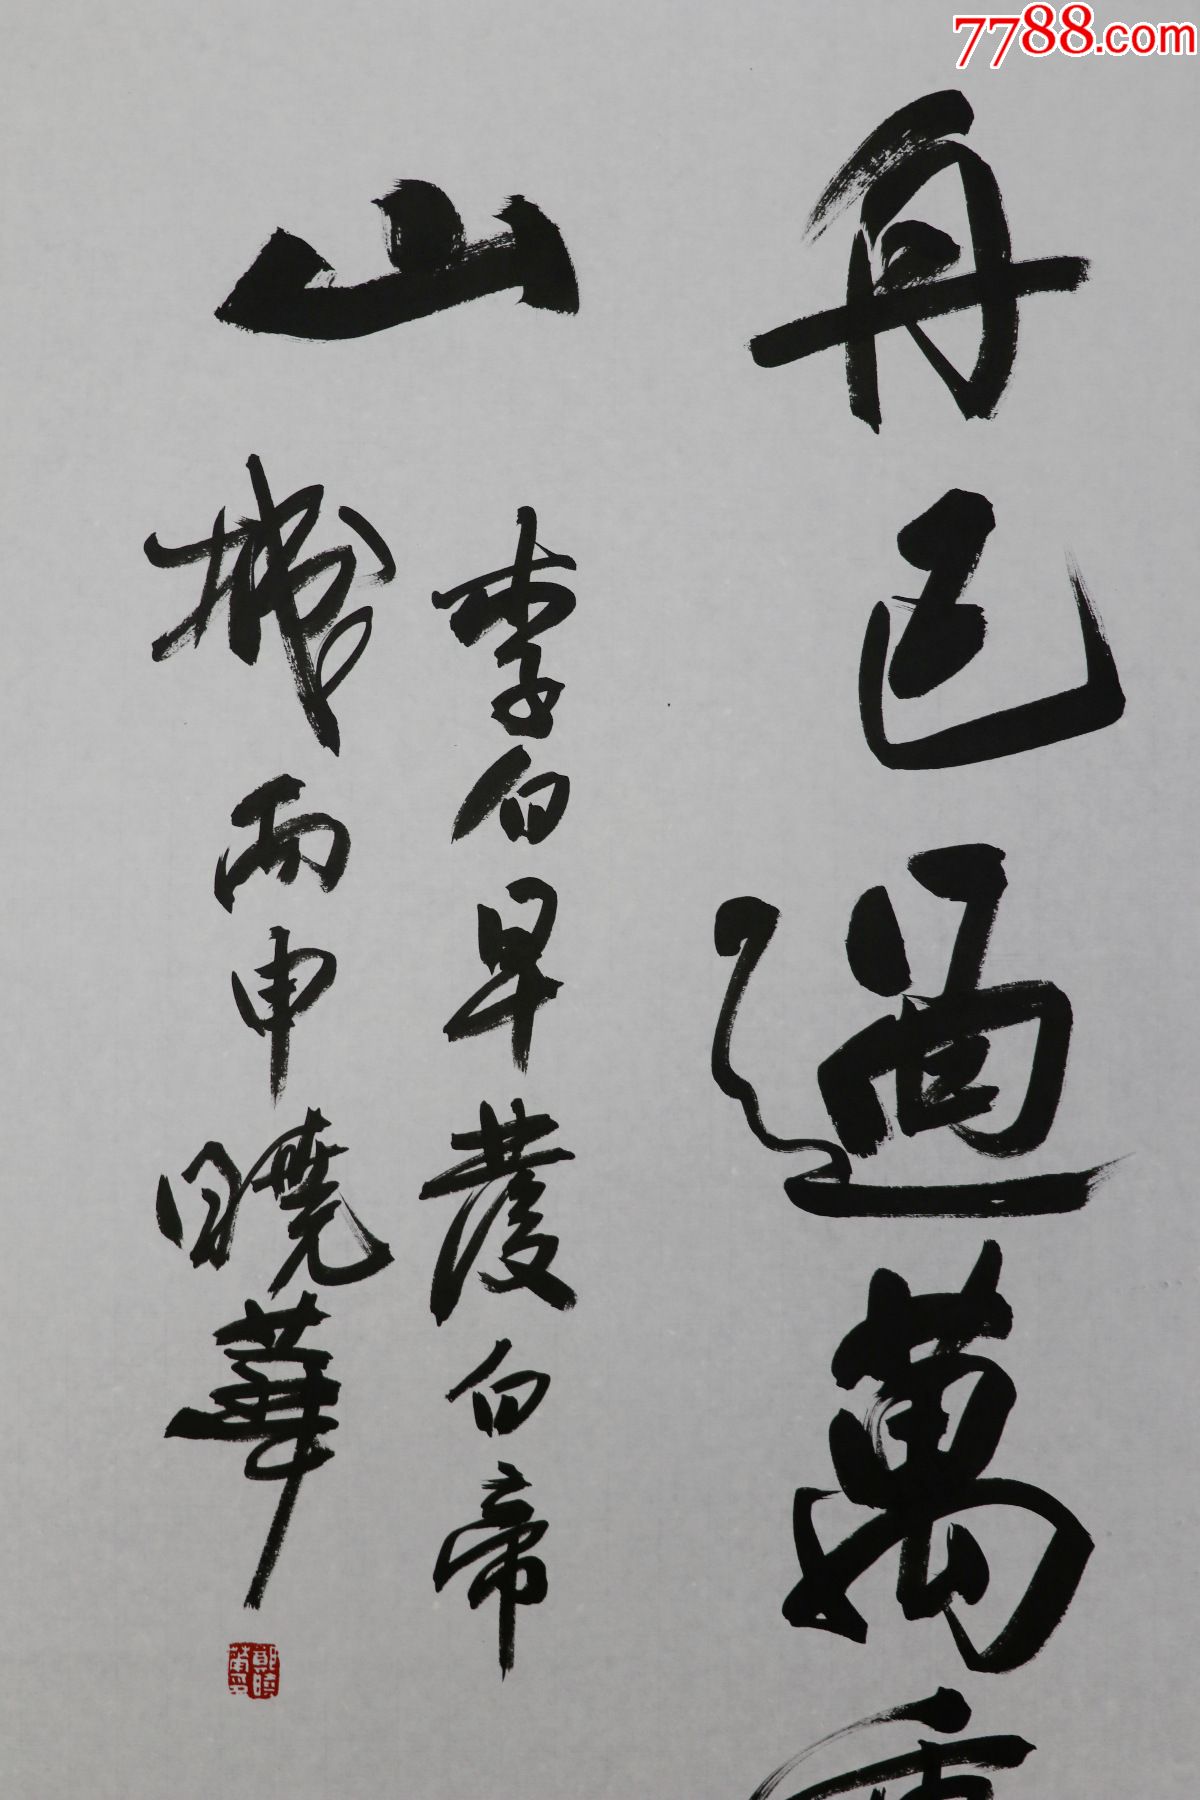 7788.com
舟已過萬重
山
李白早發白帝
城丙申曉華
鄭曉華印